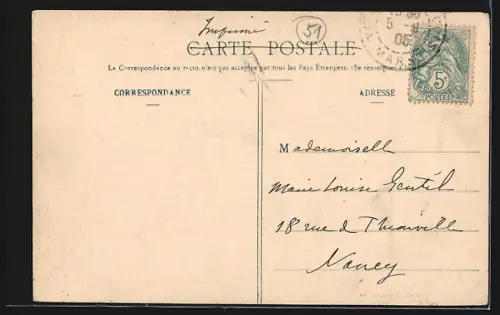 Imprimé
51
CARTE POSTALE
La Correspondance au recto n'est pas acceptée par tous les Pays Étrangers. (Se renseigner
CORRESPONDANCE
ADRESSE
5
05
MAR
5c
Mademoiselle
Marie Louise Gentil
18 rue de Thionville
Nancy